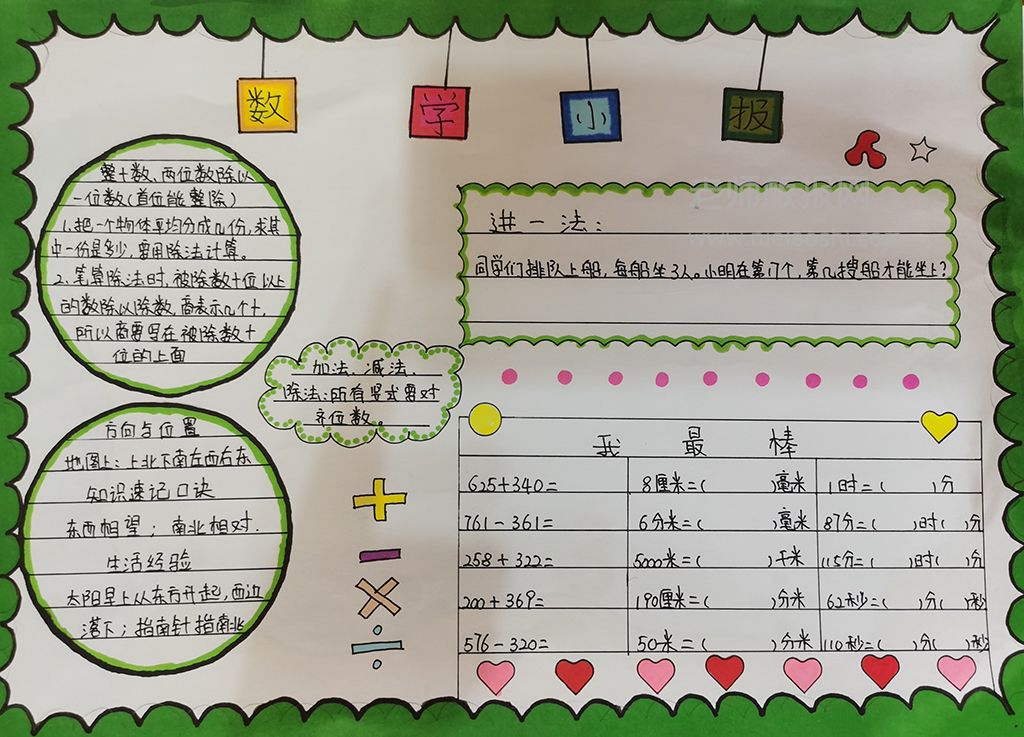 数 学 小 报
整十数、两位数除以
一位数(首位能整除)
1.把一个物体平均分成几份,求其
中一份是多少,要用除法计算。
2.笔算除法时,被除数十位以上
的数除以除数,商表示几个十,
所以商要写在被除数十
位的上面
方向与位置
地图上:上北下南左西右东
知识速记口诀
东西相望;南北相对.
生活经验
太阳早上从东方升起,西边
落下;指南针指南北
加法、减法、
除法:所有竖式要对
齐位数。
老师服报网
进一法:
同学们排队上船,每船坐3人。小明在第17个,第几搜船才能坐上?
我 最 棒
625+340= 8厘米=( )毫米 1时=( )分
761-361= 6分米=( )毫米 87分=( )时( )分
258+322= 5000米=( )千米 115分=( )时( )分
200+369= 190厘米=( )分米 62秒=( )分( )秒
576-320= 50米=( )分米 110秒=( )分( )秒